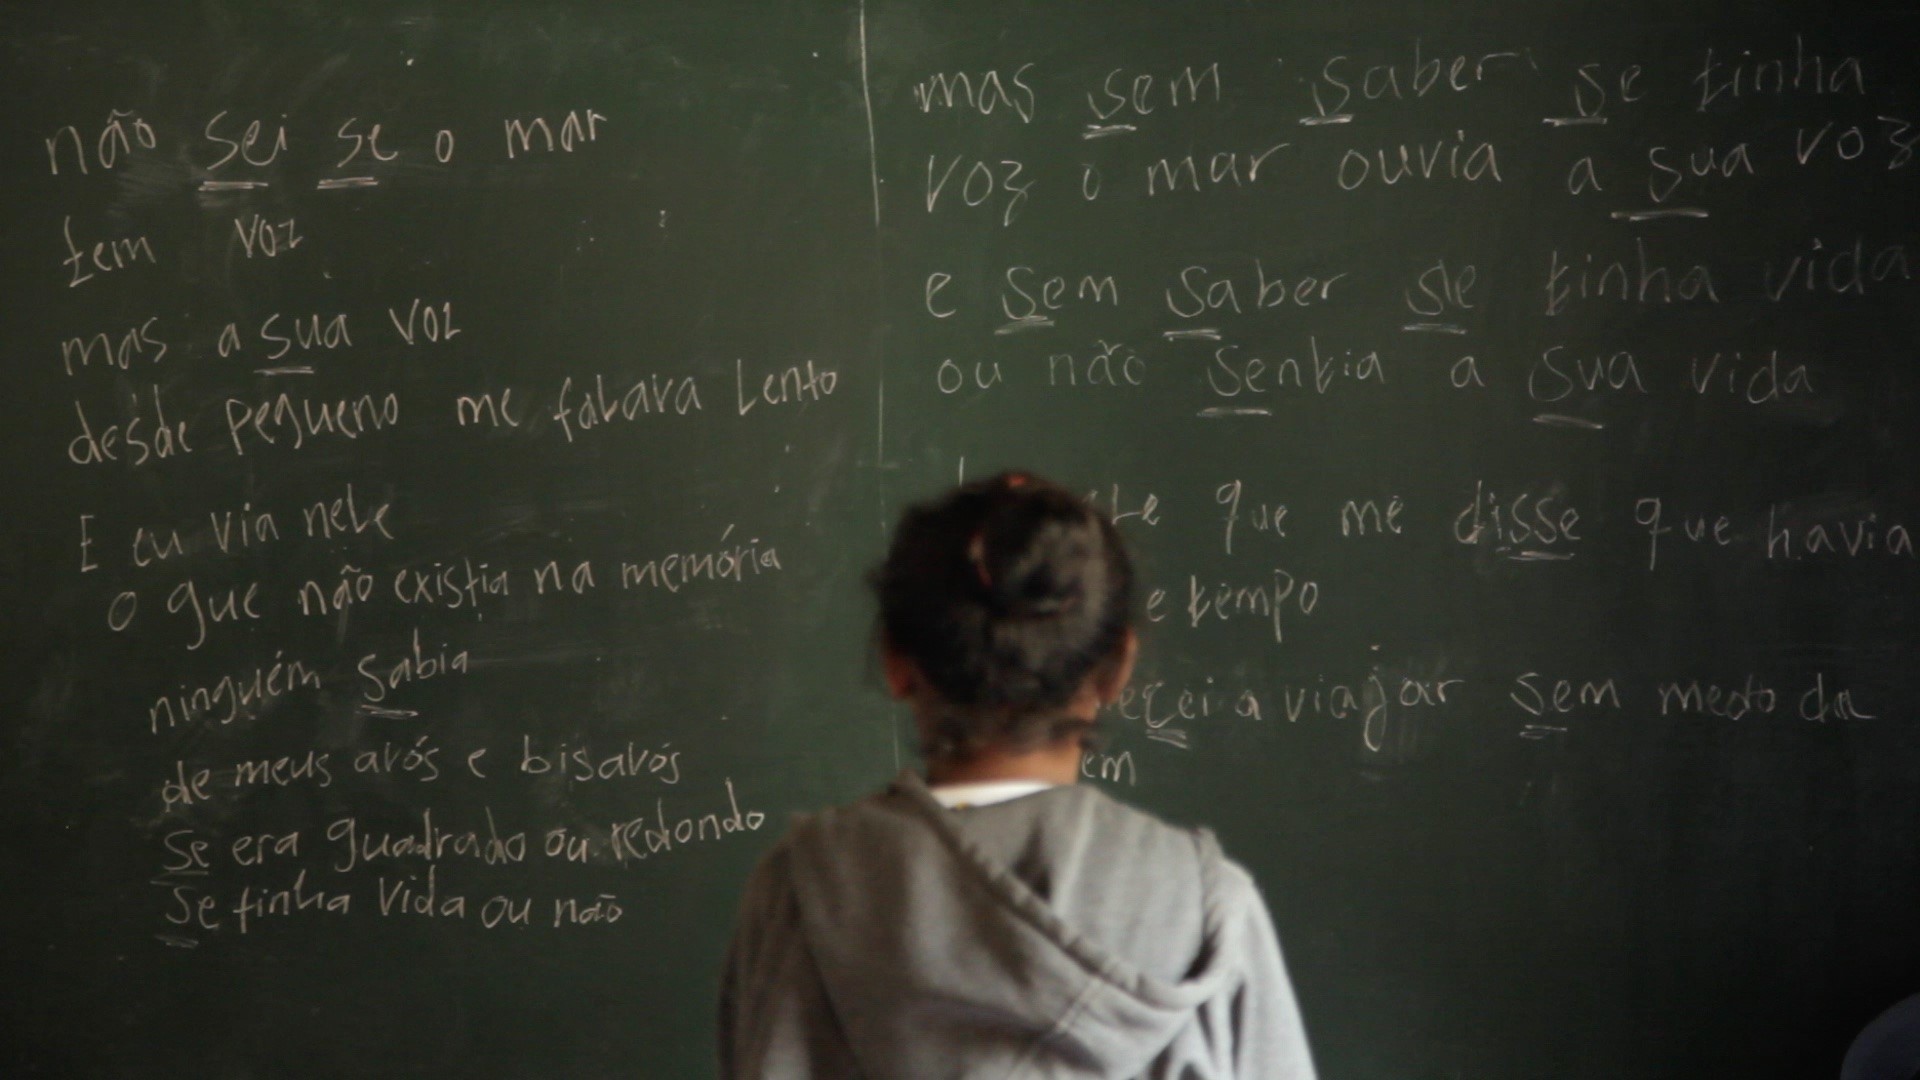 não sei se o mar
tem voz
mas a sua voz
desde pequeno me falava lento
E eu via nele
o que não existia na memória
ninguém sabia
de meus avós e bisavós
se era quadrado ou redondo
se tinha vida ou não
mas sem saber se tinha
voz o mar ouvia a sua voz
e sem saber se tinha vida
ou não sentia a sua vida
que me disse que havia
e tempo
a viajar sem medo da